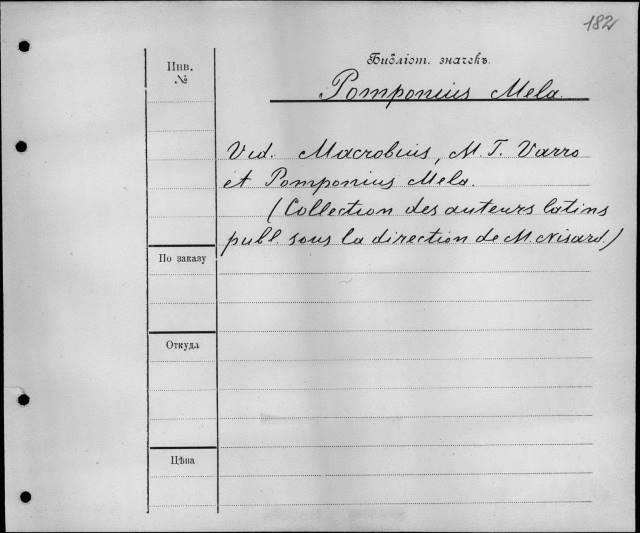 182
Инв.
№
Библіот. значекъ.
Pomponius Mela.
Vid. Macrobius, M. T. Varro
et Pomponius Mela.
(Collection des auteurs latins
publ. sous la direction de M. Nisard.)
По заказу
Откуда
Цѣна